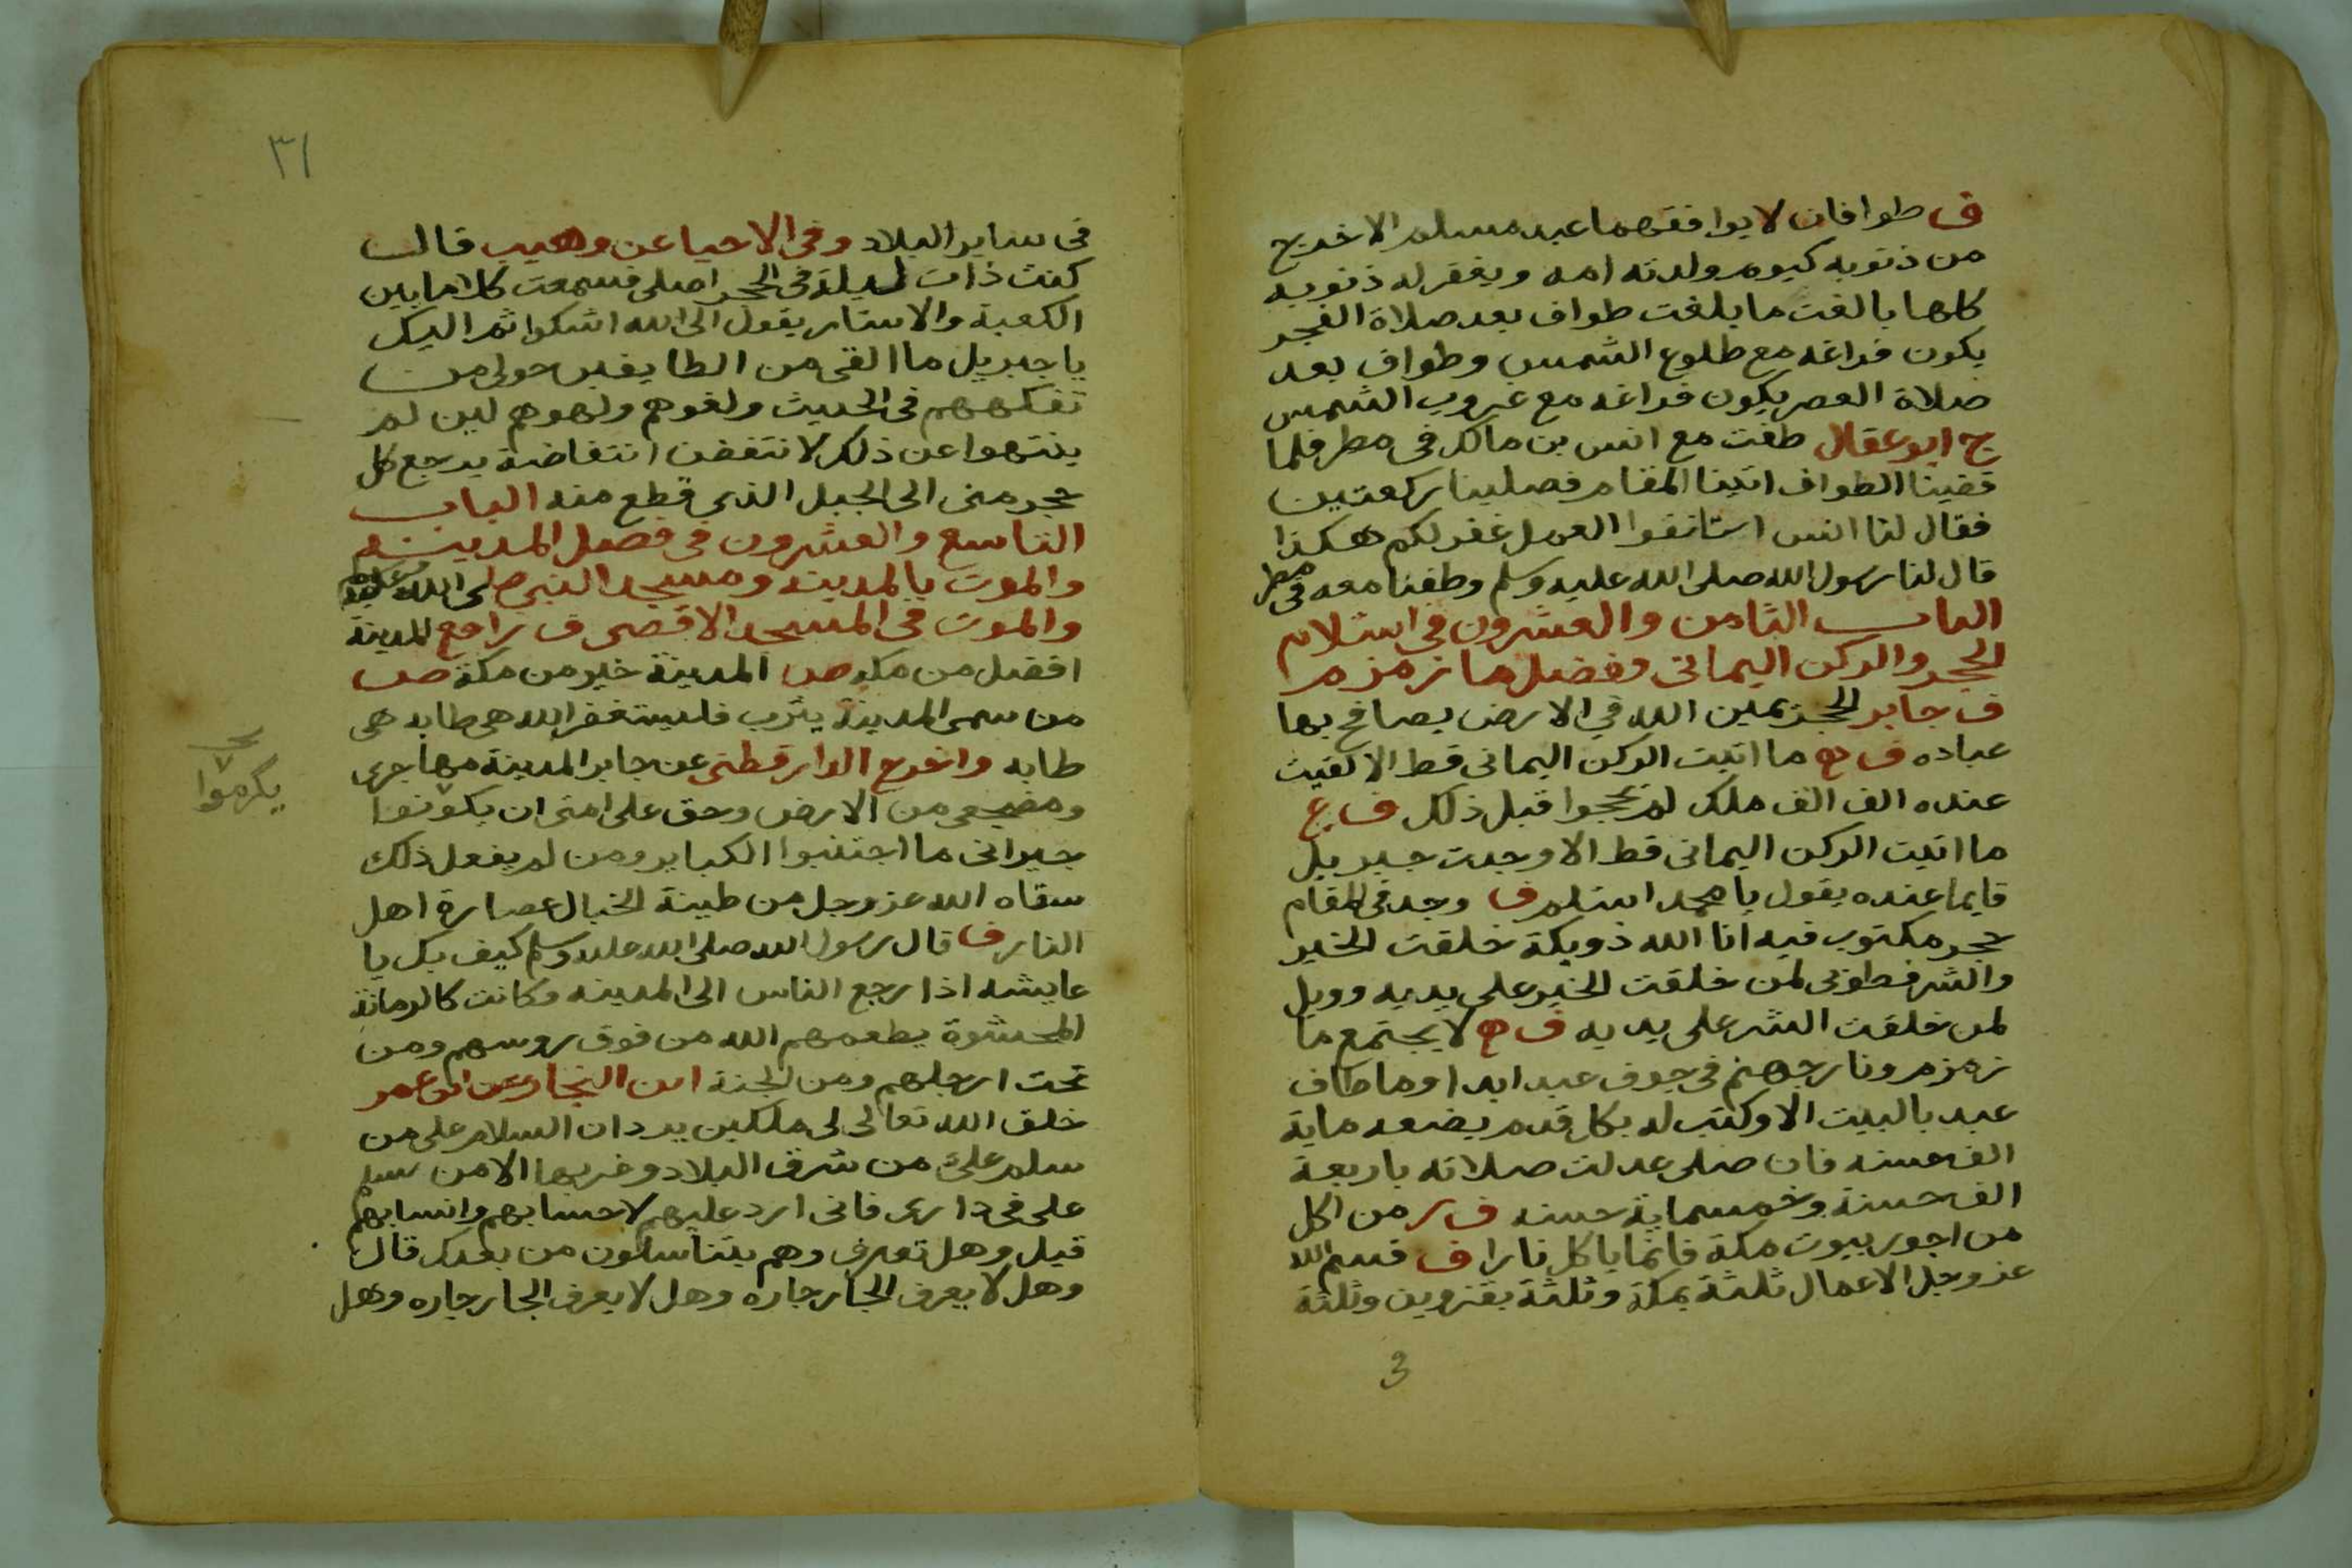 ف طوافان لا يوافقهما عبد مسلم الا خرج
من ذنوبه كيوم ولدته امه ويغفر له ذنوبه
كلها بالغت ما بلغت طواف بعد صلاة الفجر
يكون فراغه مع طلوع الشمس وطواف بعد
صلاة العصر يكون فراغه مع غروب الشمس
ج ابو عقال طفت مع انس بن مالك في مطر فلما
قضينا الطواف اتينا المقام فصلينا ركعتين
فقال لنا انس استانفوا العمل غفر لكم هكذا
قال لنا رسول الله صلى الله عليه وسلم وطفنا معه في مطر
الباب الثامن والعشرون في استلام
الحجر والركن اليماني وفضل ما زمزم
ف جابر الحجر يمين الله في الارض يصافح بها
عباده ف ج ما اتيت الركن اليماني قط الا لقيت
عنده الف الف ملك لم يحجوا قبل ذلك ف ع
ما اتيت الركن اليماني قط الا وجدت جبريل
قايما عنده يقول يا محمد استلم ف وجد في المقام
حجر مكتوب فيه انا الله ذو بكة خلقت الخير
والشر فطوبى لمن خلقت الخير على يديه وويل
لمن خلقت الشر على يديه ف ج لا يجتمع ما
زمزم ونار جهنم في جوف عبد ابدا وما طاف
عبد بالبيت الا وكتب له بكل قدم يضعه ماية
الف حسنه فان صلى عدلت صلاته باربعة
الف حسنة وخمسماية حسنه ف ر من اكل
من اجور بيوت مكة فانما ياكل نارا ف قسم الله
عز وجل الاعمال ثلثة بمكة وثلثة بقزوين وثلثة
٣١
في ساير البلاد وفي الاحيا عن وهيب قال
كنت ذات ليلة في الحجر اصلي فسمعت كلاما بين
الكعبة والاستار يقول الى الله اشكوا ثم اليك
يا جبريل ما القى من الطايفين حولي من
تفكههم في الحديث ولغوهم ولهوهم لين لم
ينتهوا عن ذلك لانتفضن انتفاضة يرجع كل
حجر مني الى الجبل الذي قطع منه الباب
التاسع والعشرون في فضل المدينة
والموت بالمدينه ومسجد النبي صلى الله عليه وسلم
والموت في المسجد الاقصى ف رافع المدينة
افضل من مكه ص المدينة خير من مكة ص
من سمى المدينة يثرب فليستغفر الله هي طابه هي
طابه واخرج الدارقطني عن جابر المدينة مهاجري
ومضجعي من الارض وحق على امتي ان يكونوا
يكرموا
جيراني ما اجتنبوا الكباير ومن لم يفعل ذلك
سقاه الله عز وجل من طينة الخبال عصارة اهل
النار ف قال رسول الله صلى الله عليه وسلم كيف بك يا
عايشه اذا رجع الناس الى المدينه وكانت كالرمانة
المحشوة يطعمهم الله من فوق روسهم ومن
تحت ارجلهم ومن الجنة ابن النجار عن ابن عمر
خلق الله تعالى لي ملكين يردان السلام على من
سلم علي من شرق البلاد وغربها الا من سلم
علي في داري فاني ارد عليهم لاحسابهم وانسابهم
قيل وهل تعرف وهم يتناسلون من بعدك قال
وهل لا يعرف الجار جاره وهل لا يعرف الجار جاره وهل